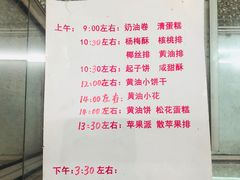 上午： 9:00左右：奶油卷 清蛋糕
10:30左右：杨梅酥 核桃排
椰丝排 黄油排
10:30左右：起子饼 咸甜酥
12:00左右：黄油小饼干
14:00左右：黄油小花
14:00左右：黄油饼 松花蛋糕
13:30左右：苹果派 散苹果排
下午：3:30左右：